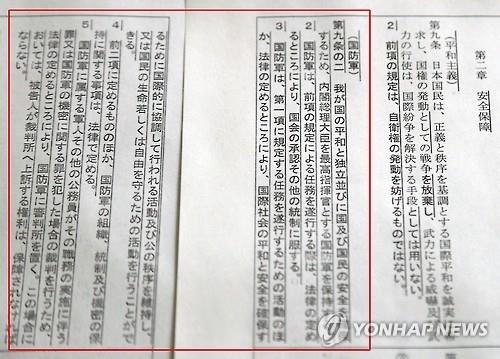 第二章　安全保障
（平和主義）
第九条　日本国民は、正義と秩序を基調とする国際平和を誠実に
求し、国権の発動としての戦争を放棄し、武力による威嚇及び武
力の行使は、国際紛争を解決する手段としては用いない。
２　前項の規定は、自衛権の発動を妨げるものではない。
（国防軍）
第九条の二　我が国の平和と独立並びに国及び国民の安全を
するため、内閣総理大臣を最高指揮官とする国防軍を保持
２　国防軍は、前項の規定による任務を遂行する際は、法律の定
るところにより、国会の承認その他の統制に服する。
３　国防軍は、第一項に規定する任務を遂行するための活動のほ
か、法律の定めるところにより、国際社会の平和と安全を確保す
るために国際的に協調して行われる活動及び公の秩序を維持し、
又は国民の生命若しくは自由を守るための活動を行うことがで
きる。
４　前二項に定めるもののほか、国防軍の組織、統制及び機密の保
持に関する事項は、法律で定める。
５　国防軍に属する軍人その他の公務員がその職務の実施に伴う
罪又は国防軍の機密に関する罪を犯した場合の裁判を行うため、
法律の定めるところにより、国防軍に審判所を置く。この場合に
おいては、被告人が裁判所へ上訴する権利は、保障されなければ
ならない。
YONHAP NEWS